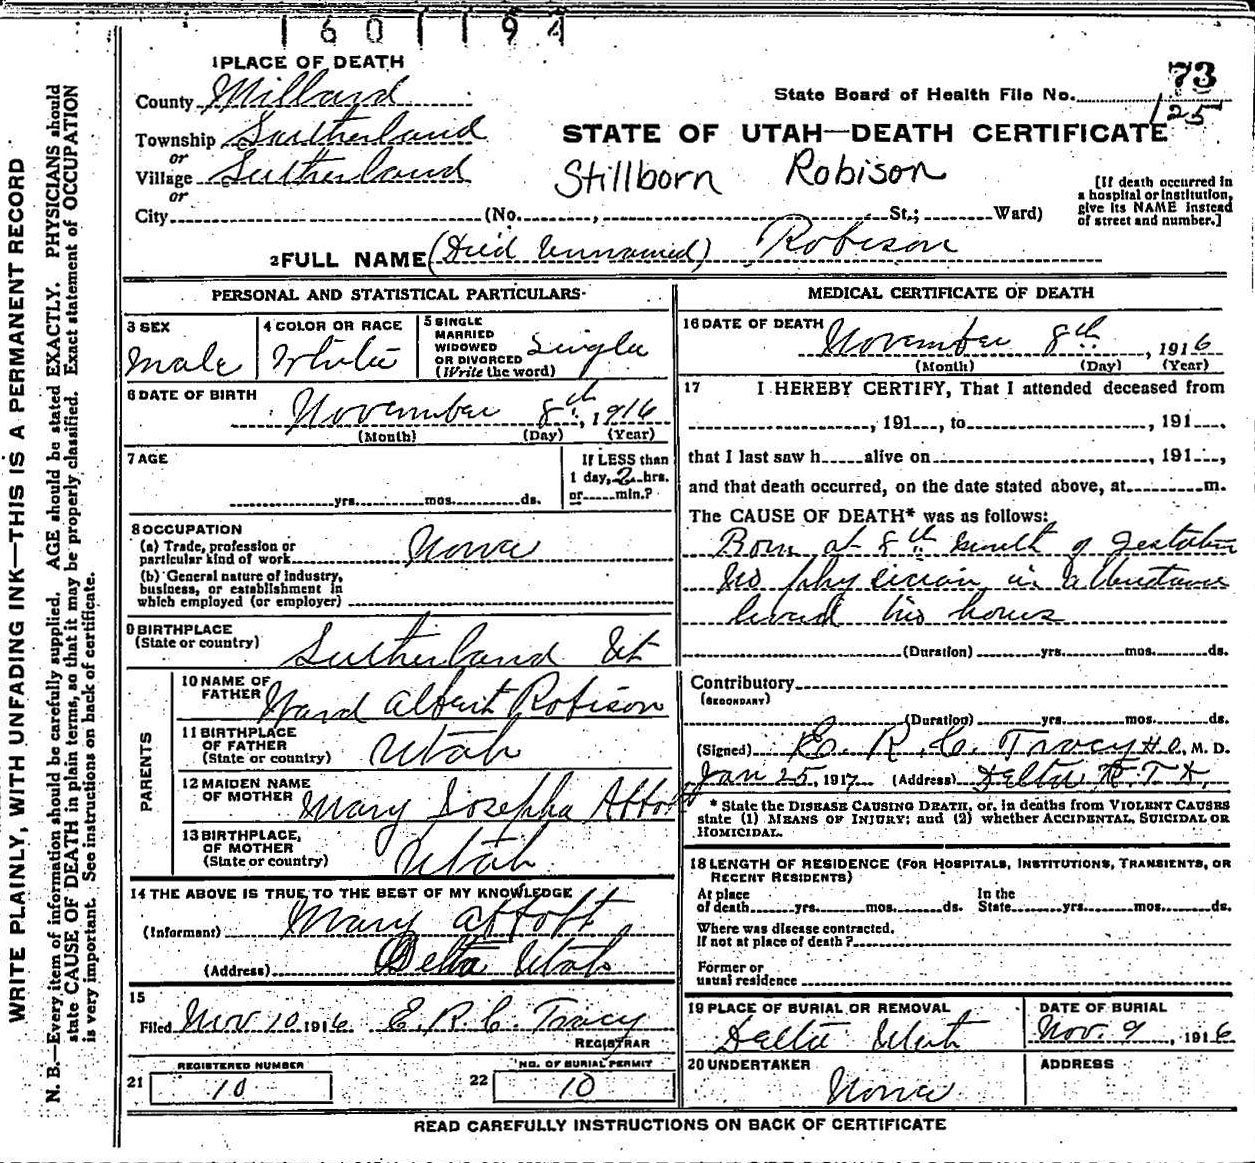 1601194
1 PLACE OF DEATH
County Millard
Township Sutherland
or
Village Sutherland
or
City (No. , St.; Ward)
73
State Board of Health File No. 125
STATE OF UTAH—DEATH CERTIFICATE
Stillborn Robison
[If death occurred in
a hospital or institution,
give its NAME instead
of street and number.]
2 FULL NAME (Died Unnamed) Robison
PERSONAL AND STATISTICAL PARTICULARS
3 SEX
Male
4 COLOR OR RACE
White
5 SINGLE
MARRIED
WIDOWED
OR DIVORCED
(Write the word)
Single
6 DATE OF BIRTH
November 8th, 1916
(Month) (Day) (Year)
7 AGE
yrs. mos. ds.
If LESS than
1 day, 2 hrs.
or min.?
8 OCCUPATION
(a) Trade, profession or
particular kind of work None
(b) General nature of industry,
business, or establishment in
which employed (or employer)
9 BIRTHPLACE
(State or country) Sutherland Ut
PARENTS
10 NAME OF
FATHER Ward Albert Robison
11 BIRTHPLACE
OF FATHER
(State or country) Utah
12 MAIDEN NAME
OF MOTHER Mary Josepha Abbott
13 BIRTHPLACE,
OF MOTHER
(State or country) Utah
14 THE ABOVE IS TRUE TO THE BEST OF MY KNOWLEDGE
(Informant) Mary Abbott
(Address) Delta Utah
15
Filed Nov 10 1916 E. R. C. Tracy
REGISTRAR
REGISTERED NUMBER
21 10
NO. OF BURIAL PERMIT
22 10
MEDICAL CERTIFICATE OF DEATH
16 DATE OF DEATH
November 8th, 1916
(Month) (Day) (Year)
17 I HEREBY CERTIFY, That I attended deceased from
, 191 , to , 191 .
that I last saw h alive on , 191 ,
and that death occurred, on the date stated above, at m.
The CAUSE OF DEATH* was as follows:
Born at 8th month of gestation
No physician in attendance
lived two hours
(Duration) yrs. mos. ds.
Contributory
(SECONDARY)
(Duration) yrs. mos. ds.
(Signed) E. R. C. Tracy H.O., M. D.
Jan 25, 1917 (Address) Delta
* State the DISEASE CAUSING DEATH, or, in deaths from VIOLENT CAUSES
state (1) MEANS OF INJURY; and (2) whether ACCIDENTAL, SUICIDAL OR
HOMICIDAL.
18 LENGTH OF RESIDENCE (FOR HOSPITALS, INSTITUTIONS, TRANSIENTS, OR
RECENT RESIDENTS)
At place
of death yrs. mos. ds.
In the
State yrs. mos. ds.
Where was disease contracted.
If not at place of death?
Former or
usual residence
19 PLACE OF BURIAL OR REMOVAL
Delta Utah
DATE OF BURIAL
Nov. 9, 1916
20 UNDERTAKER
None
ADDRESS
READ CAREFULLY INSTRUCTIONS ON BACK OF CERTIFICATE
WRITE PLAINLY, WITH UNFADING INK—THIS IS A PERMANENT RECORD
N. B.—Every item of information should be carefully supplied. AGE should be stated EXACTLY. PHYSICIANS should
state CAUSE OF DEATH in plain terms, so that it may be properly classified. Exact statement of OCCUPATION
is very important. See instructions on back of certificate.